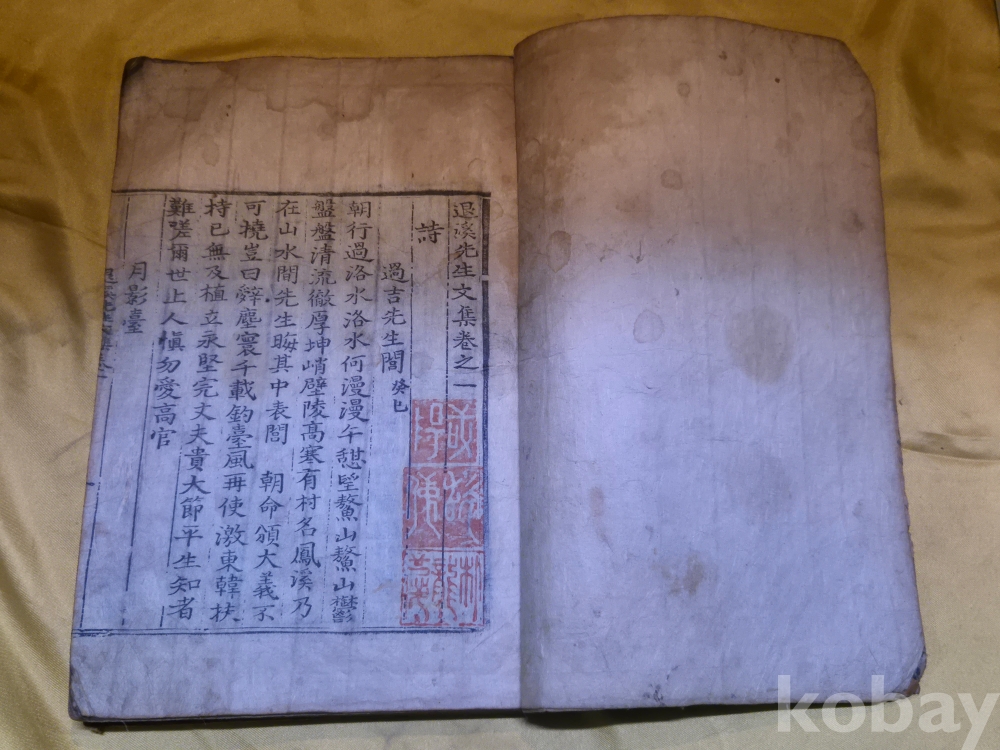 退溪先生文集卷之一
詩
過吉先生閭 癸巳
朝行過洛水洛水何漫漫午憩望鰲山鰲山鬱
盤盤清流徹厚坤峭壁陵高寒有村名鳳溪乃
在山水間先生晦其中表閭 朝命頒大義不
可撓豈曰辭塵寰千載釣臺風再使激東韓扶
持已無及植立永堅完丈夫貴大節平生知者
難嗟爾世上人愼勿愛高官
月影臺
kobay